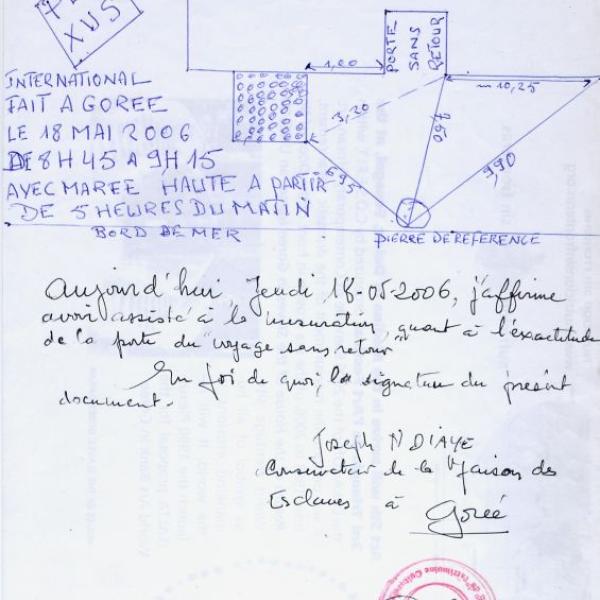 XUS
INTERNATIONAL
FAIT A GOREE
LE 18 MAI 2006
DE 8H45 A 9H15
AVEC MAREE HAUTE A PARTIR
DE 5 HEURES DU MATIN
BORD DE MER
1,00
PORTE
SANS
RETOUR
m 10,25
3,20
695
760
990
PIERRE DE REFERENCE
Aujourd'hui, Jeudi 18-05-2006, j'affirme
avoir assisté à la mensuration, quant à l'exactitude
de la porte du "voyage sans retour"
En foi de quoi, la signature du présent
document.
Joseph NDIAYE
Conservateur de la Maison des
Esclaves à Gorée